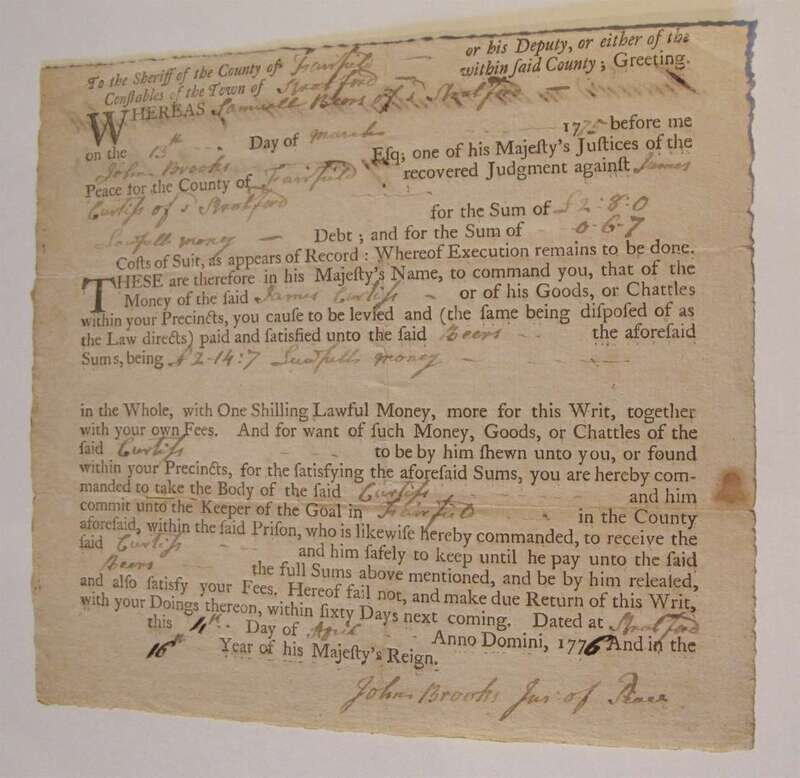 To the Sheriff of the County of Fairfield or his Deputy, or either of the
Constables of the Town of Stratford within ſaid County; Greeting.
WHEREAS Samuell Beers of s Stratford
on the 13th Day of March 177 before me
John Brooks Eſq; one of his Majeſty's Juſtices of the
Peace for the County of Fairfield recovered Judgment againſt James
Curtiſs of s Stratford for the Sum of £2:8:0
Lawfull money Debt; and for the Sum of 0-6-7
Coſts of Suit, as appears of Record: Whereof Execution remains to be done.
THESE are therefore in his Majeſty's Name, to command you, that of the
Money of the ſaid James Curtiſs or of his Goods, or Chattles
within your Precincts, you cauſe to be levied and (the ſame being diſpoſed of as
the Law directs) paid and ſatisfied unto the ſaid Beers the aforeſaid
Sums, being £2-14:7 Lawfull money
in the Whole, with One Shilling Lawful Money, more for this Writ, together
with your own Fees. And for want of ſuch Money, Goods, or Chattles of the
ſaid Curtiſs to be by him ſhewn unto you, or found
within your Precincts, for the ſatisfying the aforeſaid Sums, you are hereby com-
manded to take the Body of the ſaid Curtiſs and him
commit unto the Keeper of the Goal in Fairfield in the County
aforeſaid, within the ſaid Priſon, who is likewiſe hereby commanded, to receive the
ſaid Curtiſs and him ſafely to keep until he pay unto the ſaid
Beers the full Sums above mentioned, and be by him releaſed,
and alſo ſatisfy your Fees. Hereof fail not, and make due Return of this Writ,
with your Doings thereon, within ſixty Days next coming. Dated at Stratford
this 4th Day of April Anno Domini, 1776 And in the
16th Year of his Majeſty's Reign.
John Brooks Jus: of Peace